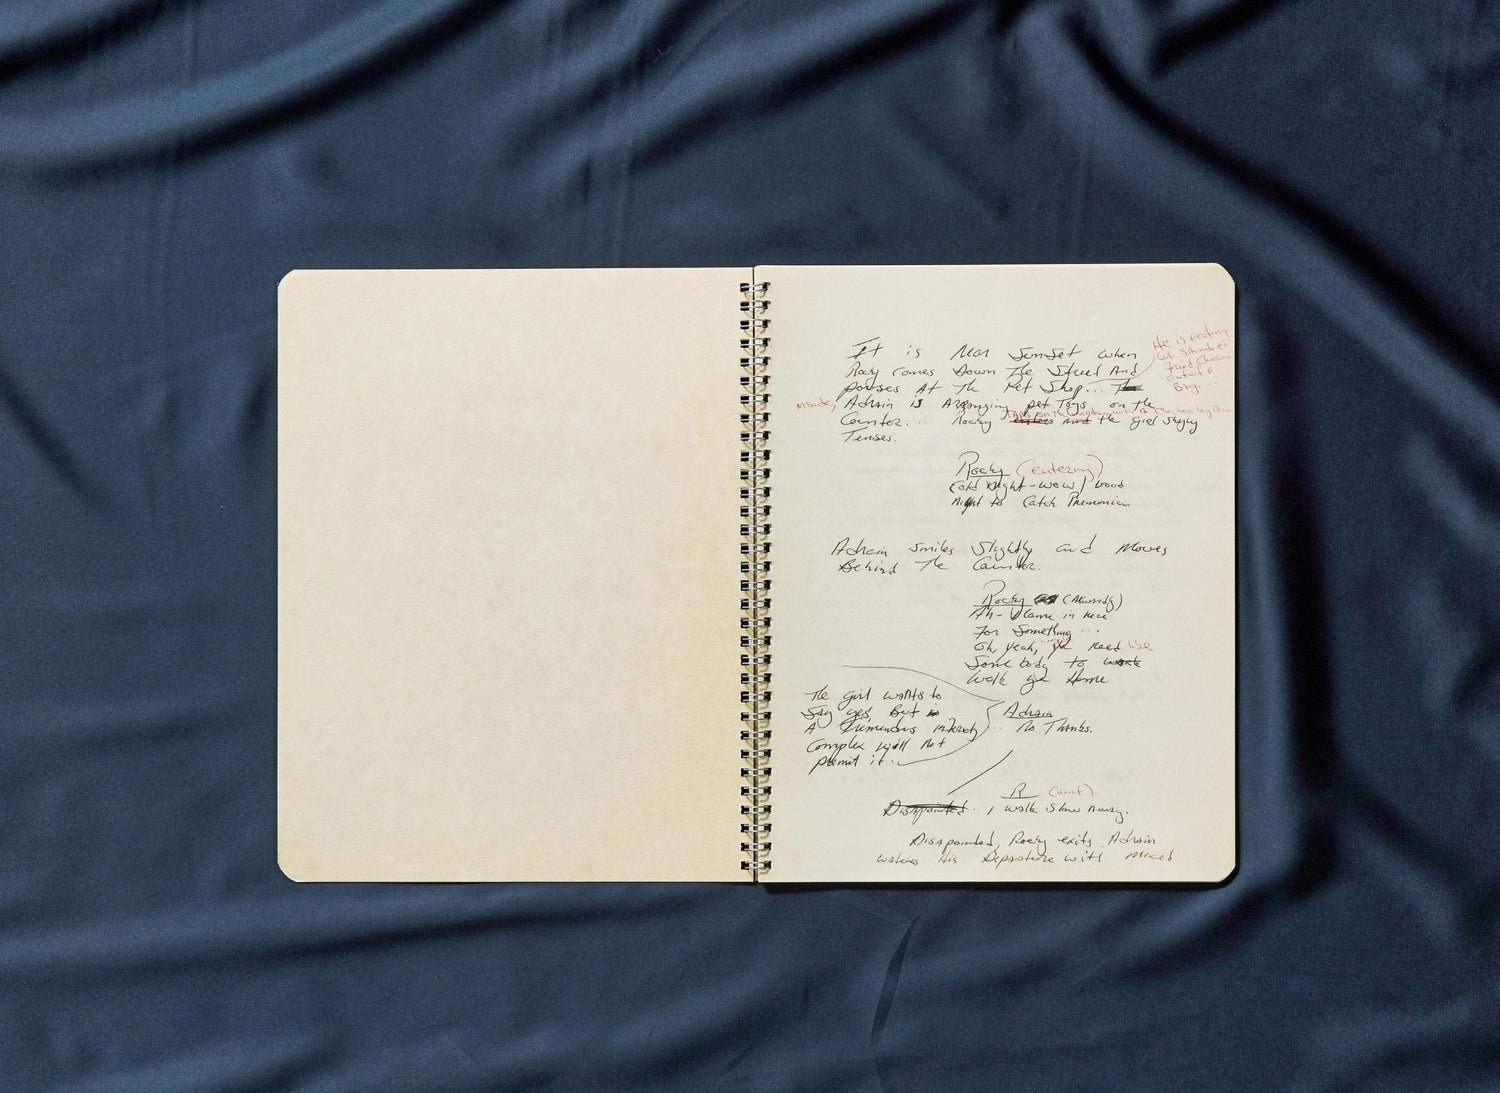 It is Near Sunset when
He is eating
Rocky comes Down The Street And
Fried Chicken
out of A
Bag...
pauses At The Pet Shop...
inside, Adrain is Arranging pet Toys on the
Counter... Rocky and the girl Shyly
Tenses.
Rocky (entering)
Cold Night - wow, Good
night to Catch Pnemonia
Adrain smiles Slightly and Moves
Behind The Counter.
Rocky
Ah - I came in here
For Something ...
Oh, yeah, ya need like
Somebody to
walk ya Home.
The girl wants to
Say yes, But
Adrain
A Tremendous
No Thanks.
Complex will not
permit it..
R
Disapointed I walk Slow Away.
Disapointed, Rocky exits. Adrain
watches His Departure with mixed